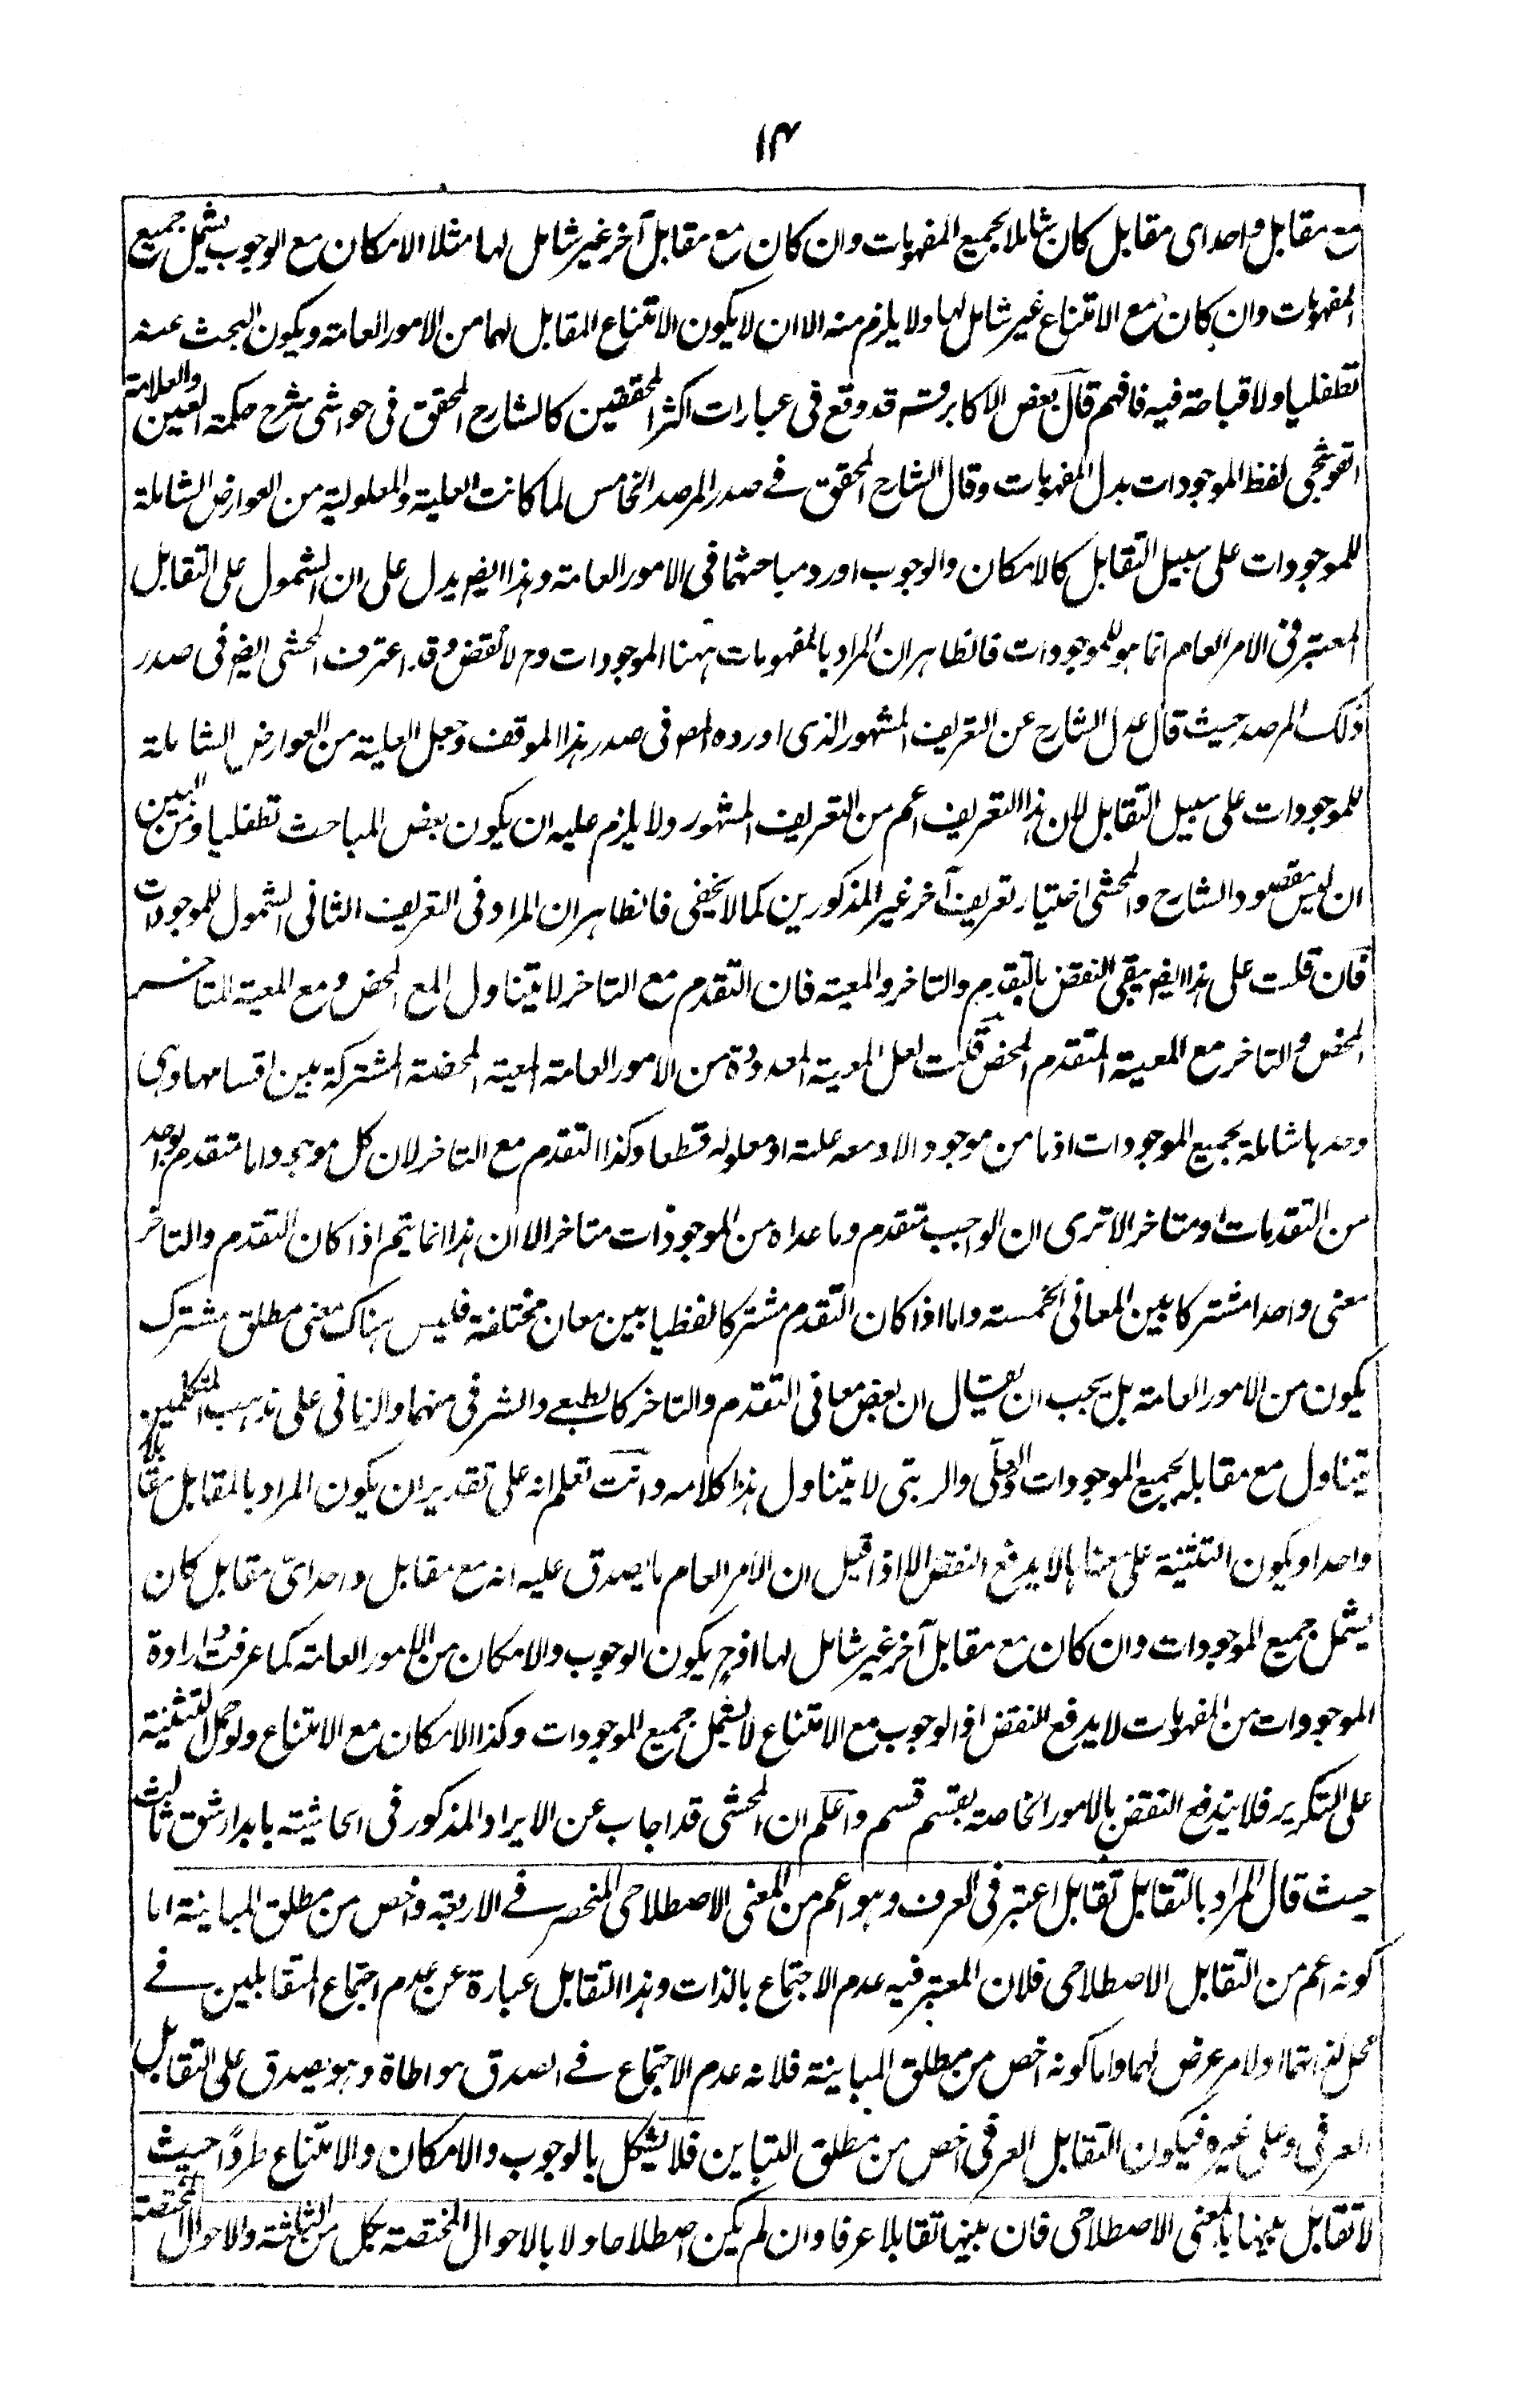 ١٤
مع مقابل واحد اى مقابل كان شاملا لجميع المفهومات وان كان مع مقابل آخر غير شامل لها مثلا الامكان مع الوجوب يشمل جميع
المفهومات وان كان مع الامتناع غير شامل لها ولا يلزم منه الا ان لا يكون الامتناع المقابل لهما من الامور العامة ويكون البحث عنه
تطفليا ولا قباحة فيه فافهم قال بعض الاكابر قده قد وقع فى عبارات اكثر المحققين كالشارح المحقق فى حواشى شرح حكمة العين والعلامة
القوشجى لفظ الموجودات بدل المفهومات وقال الشارح المحقق فى صدر المرصد الخامس لما كانت العلية والمعلولية من العوارض الشاملة
للموجودات على سبيل التقابل كالامكان والوجوب اورد مباحثهما فى الامور العامة وهذا ايضا يدل على ان الشمول على التقابل
المعتبر فى الامر العام انما هو للموجودات فالظاهر ان المراد بالمفهومات ههنا الموجودات وح لا نقض وقد اعترف المحشى ايضا فى صدر
ذلك المرصد حيث قال عدل الشارح عن التعريف المشهور الذى اورده المصـ فى صدر هذا الموقف وجعل العلية من العوارض الشاملة
للموجودات على سبيل التقابل لان هذا التعريف اعم من التعريف المشهور ولا يلزم عليه ان يكون بعض المباحث تطفليا ومن البين
ان ليس مقصود الشارح والمحشى اختيار تعريف آخر غير المذكورين كما لا يخفى فالظاهر ان المراد فى التعريف الثانى الشمول للموجودات
فان قلت على هذا ايضا يبقى النقض بالتقدم والتاخر والمعية فان التقدم مع التاخر لا يتناول المع المحض ومع المعية المتاخر
المحض والتاخر مع المعية المتقدم المحض قلت لعل المعية المعدودة من الامور العامة المعية المحضة المشتركة بين اقسامها وهى
وحدها شاملة لجميع الموجودات اذ ما من موجود الا ومعه علته او معلوله قطعا وكذا التقدم مع التاخر لان كل موجود اما متقدم بواحد
من التقدمات او متاخر الا ترى ان الواجب متقدم وما عداه من الموجودات متاخر الا ان هذا انما يتم اذا كان التقدم والتاخر
معنى واحدا مشتركا بين المعانى الخمسة واما اذا كان التقدم مشتركا لفظيا بين معان مختلفة فليس هناك معنى مطلق مشترك
يكون من الامور العامة بل يجب ان يقال ان بعض معانى التقدم والتاخر كالطبعى والشرفى منهما والزمانى على مذهب المتكلمين
يتناول مع مقابله جميع الموجودات والعلى والرتبى لا يتناول هذا كلامه وانت تعلم انه على تقدير ان يكون المراد بالمقابل مقابلا
واحدا ويكون التثنية على معناها لا يدفع النقض الا اذا قيل ان الامر العام ما يصدق عليه انه مع مقابل واحد اىّ مقابل كان
يشمل جميع الموجودات وان كان مع مقابل آخر غير شامل لها اذ ح يكون الوجوب والامكان من الامور العامة كما عرفت وارادة
الموجودات من المفهومات لا يدفع النقض اذ الوجوب مع الامتناع لا يشمل جميع الموجودات وكذا الامكان مع الامتناع ولو حمل التثنية
على التكرير فلا يندفع النقض بالامور الخاصة بقسم قسم واعلم ان المحشى قد اجاب عن الايراد المذكور فى الحاشية بابدار شق ثالث
حيث قال المراد بالتقابل تقابل اعتبر فى العرف وهو اعم من المعنى الاصطلاحى المنحصر فى الاربعة واخص من مطلق المباينة اما
كونه اعم من التقابل الاصطلاحى فلان المعتبر فيه عدم الاجتماع بالذات وهذا التقابل عبارة عن عدم اجتماع المتقابلين فى
محل لذاتهما او لامر عرض لهما واما كونه اخص من مطلق المباينة فلانه عدم الاجتماع فى الصدق مواطاة وهو يصدق على التقابل
العرفى وعلى غيره فيكون التقابل العرفى اخص من مطلق التباين فلا يشكل بالوجوب والامكان والامتناع طردًا حيث
لا تقابل بينها بالمعنى الاصطلاحى فان بينها تقابلا عرفا وان لم يكن اصطلاحا ولا بالاحوال المختصة بكل من الثلثة والاحوال المختصة